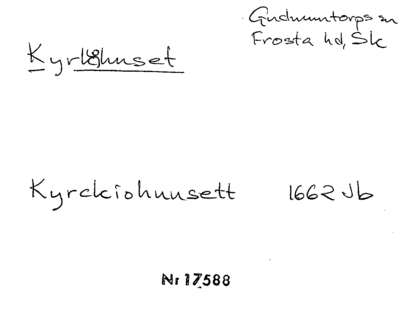 Gudmuntorps sn
Frosta hd, Sk
Kyrkohuset
Kyrckiohuusett 1662 Jb
Nr 17588